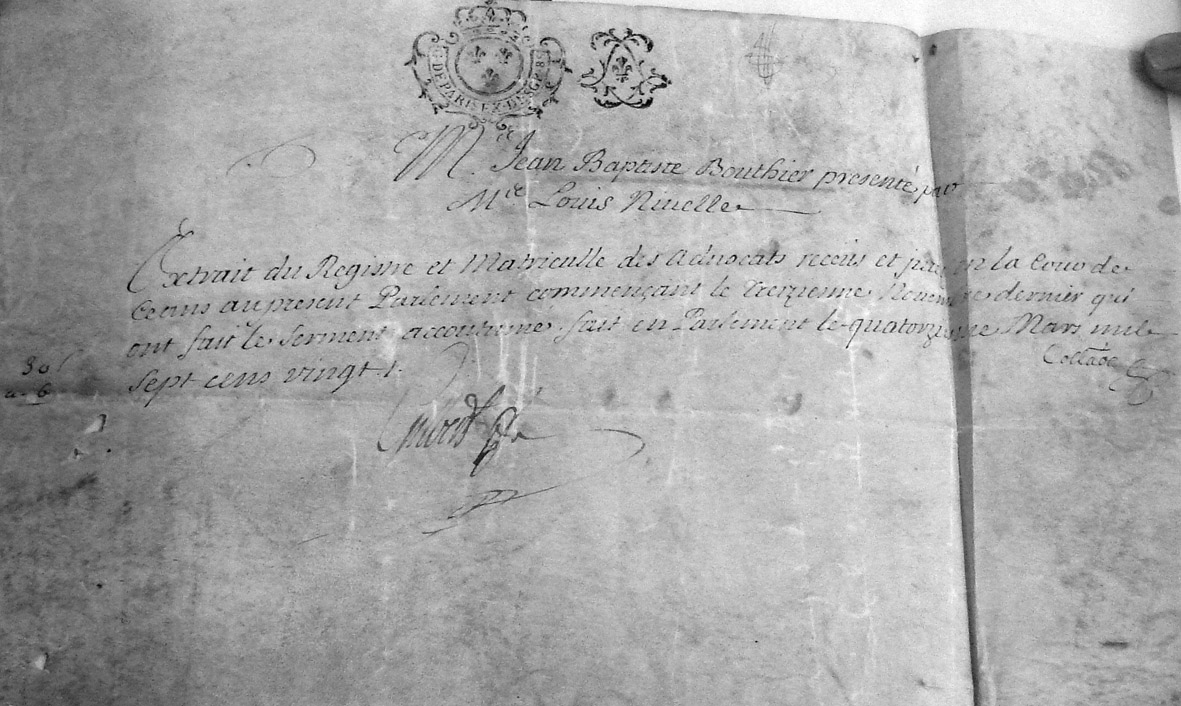 G. DE PARIS. EX. DES GR. 8 S
M.^e Jean Baptiste Bouthier presenté par
M^e Louis Niuelle
Extrait du Registre et Matriculle des Advocats receus et en la Cour de
Ceans au present Parlement commençant le treizieme Nouembre dernier qui
ont fait le Serment accoutumé. fait en Parlement le quatorzieme Mars mil
sept cens vingt.
Collaõe
30ˢ
a. 6